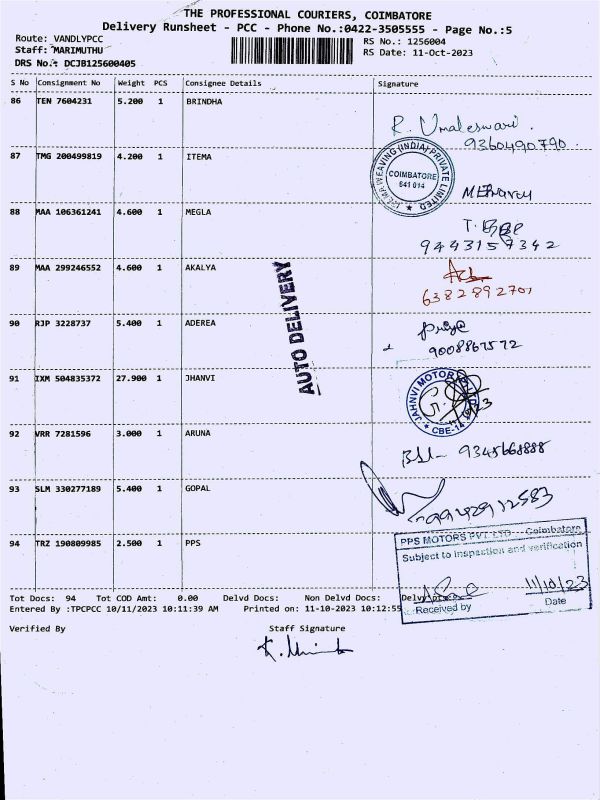 THE PROFESSIONAL COURIERS, COIMBATORE
Delivery Runsheet - PCC - Phone No.:0422-3505555 - Page No.:5
Route: VANDLYPCC
RS No.: 1256004
Staff: MARIMUTHU
RS Date: 11-Oct-2023
DRS No.: DCJB125600405
S No Consignment No Weight PCS Consignee Details Signature
86 TEN 7604231 5.200 1 BRINDHA
R. Umaleswari.
9360490790.
87 TMG 200499819 4.200 1 ITEMA
ITEMA WEAVING (INDIA) PRIVATE LIMITED
COIMATORE
641 014
88 MAA 106361241 4.600 1 MEGLA
9443157342
89 MAA 299246552 4.600 1 AKALYA
6382892701
AUTO DELIVERY
90 RJP 3228737 5.400 1 ADEREA
Priya
9008867572
91 IXM 504835372 27.900 1 JHANVI
JAHNVI MOTOR
CBE-14
92 VRR 7281596 3.000 1 ARUNA
9345668888
93 SLM 330277189 5.400 1 GOPAL
9942912583
94 TRZ 190809985 2.500 1 PPS
PPS MOTORS PVT LTD - Coimbatore
Subject to inspection and verification
11/10/23
Received by Date
Tot Docs: 94 Tot COD Amt: 0.00 Delvd Docs: Non Delvd Docs:
Entered By :TPCPCC 10/11/2023 10:11:39 AM Printed on: 11-10-2023 10:12:55
Verified By Staff Signature